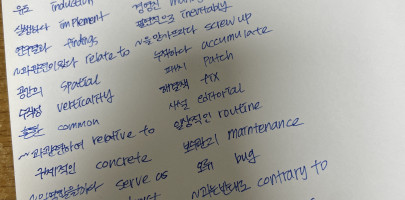 유도 induction
실행하다 implement
연구결과 findings
필연적으로 inevitably
~와 관련이 있다 relate to
~을 망가뜨리다 screw up
공간의 spatial
누적하다 accumulate
수직성 verticality
패치 patch
common
해결책 fix
사설 editorial
~과 관련하여 relative to
일상적인 routine
구체적인 concrete
보수관리 maintenance
serve as
오류 bug
~과는 반대로 contrary to